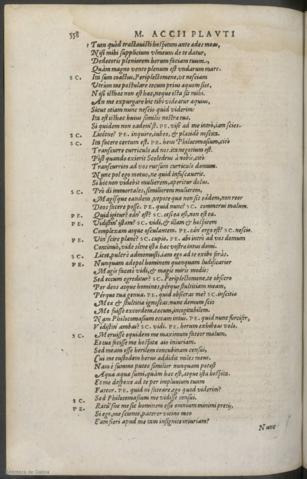 558 M. ACCII PLAVTI
Tum quòd tractauisti hospitam ante ædes meas,
Nisi mihi supplicium uimeum de te datur,
Dedecoris pleniorem herum faciam tuum,
Quàm magno uento plenum est undarum mare.
SC. Ita sum coactus, Periplectomene, ut nesciam
Vtrum me postulare tecum prius æquum siet,
Nisi isthæc non est hæc, neque ista sit mihi
An me expurgare hic tibi videatur æquius,
Sicut etiam nunc nescio quid viderim:
Ita est isthæc huius similis nostræ tua,
Si quidem non eadem est. PE. vise ad me intrò, iam scies.
SC. Licetne? PE. inquam, iubeo, & placidè noscita.
SC. Ita facere certum est. PE. heus Philocomasium, citò
Transcurre curriculo ad nos: ita negotium est.
Pòst quando exierit Sceledrus à nobis, citò
Transcurrito ad vos rursum curriculo domum.
Nunc pol ego metuo, ne quid infuscauerit.
Si hic non videbit mulierem, aperitur dolus.
SC. Prò di immortales, similiorem mulierem,
Magisque eandem, ut pote quæ non sit eadem, non reor
Deos facere posse. PE. quid nunc? SC. commerui malum.
PE. Quid igitur? ean' est? SC. etsi ea est, non est ea.
PE. Vidistin' istam? SC. vidi, & illam & hospitem
Complexam atque osculantem. PE. eán' ergo est? SC. nescio.
PE. Vin' scire planè? SC. cupio. PE. abi intrò ad vos domum
Continuò, vide sitne ista hæc vostra intus domi.
SC. Licet, pulcrè admonuisti, iam ego ad te exibo foràs.
PE. Nunquam ædepol hominem quenquam ludificarier
Magis facetè vidi, & magis miris modis:
Sed eccum egreditur? SC. Periplectomene, te obsecro
Per deos atque homines, pérque stultitiam meam,
Pérque tua genua. PE. quid obsecras me? SC. inscitiæ
Meæ & stultitiæ ignoscas: nunc demum scio
Me fuisse excordem, cæcum, incogitabilem.
Nam Philocomasium eccam intus. PE. quid nunc furcifer,
Vidistin' ambas? SC. vidi. PE. herum exhibeas velo.
SC. Meruisse equidem me maxumum fateor malum,
Et tuæ fecisse me hospitæ aio iniuriam.
Sed meam esse herilem concubinam censui,
Cui me custodem herus addidit miles meus.
Nam è summo puteo similior nunquam potest
Aqua aquæ sumi, quàm hæc est, atque ista hospita.
Et me despexe ad te per impluuium tuum
Fateor. PE. quid ni fateare, ego quod viderim?
SC. Sed Philocomasium me vidisse censui.
PE. Ratúsne me sic hominem esse omnium minimi pretij,
Si ego, me sciente, paterer vicino meo
Eam fieri apud me tam insignitè iniuriam?
Nunc